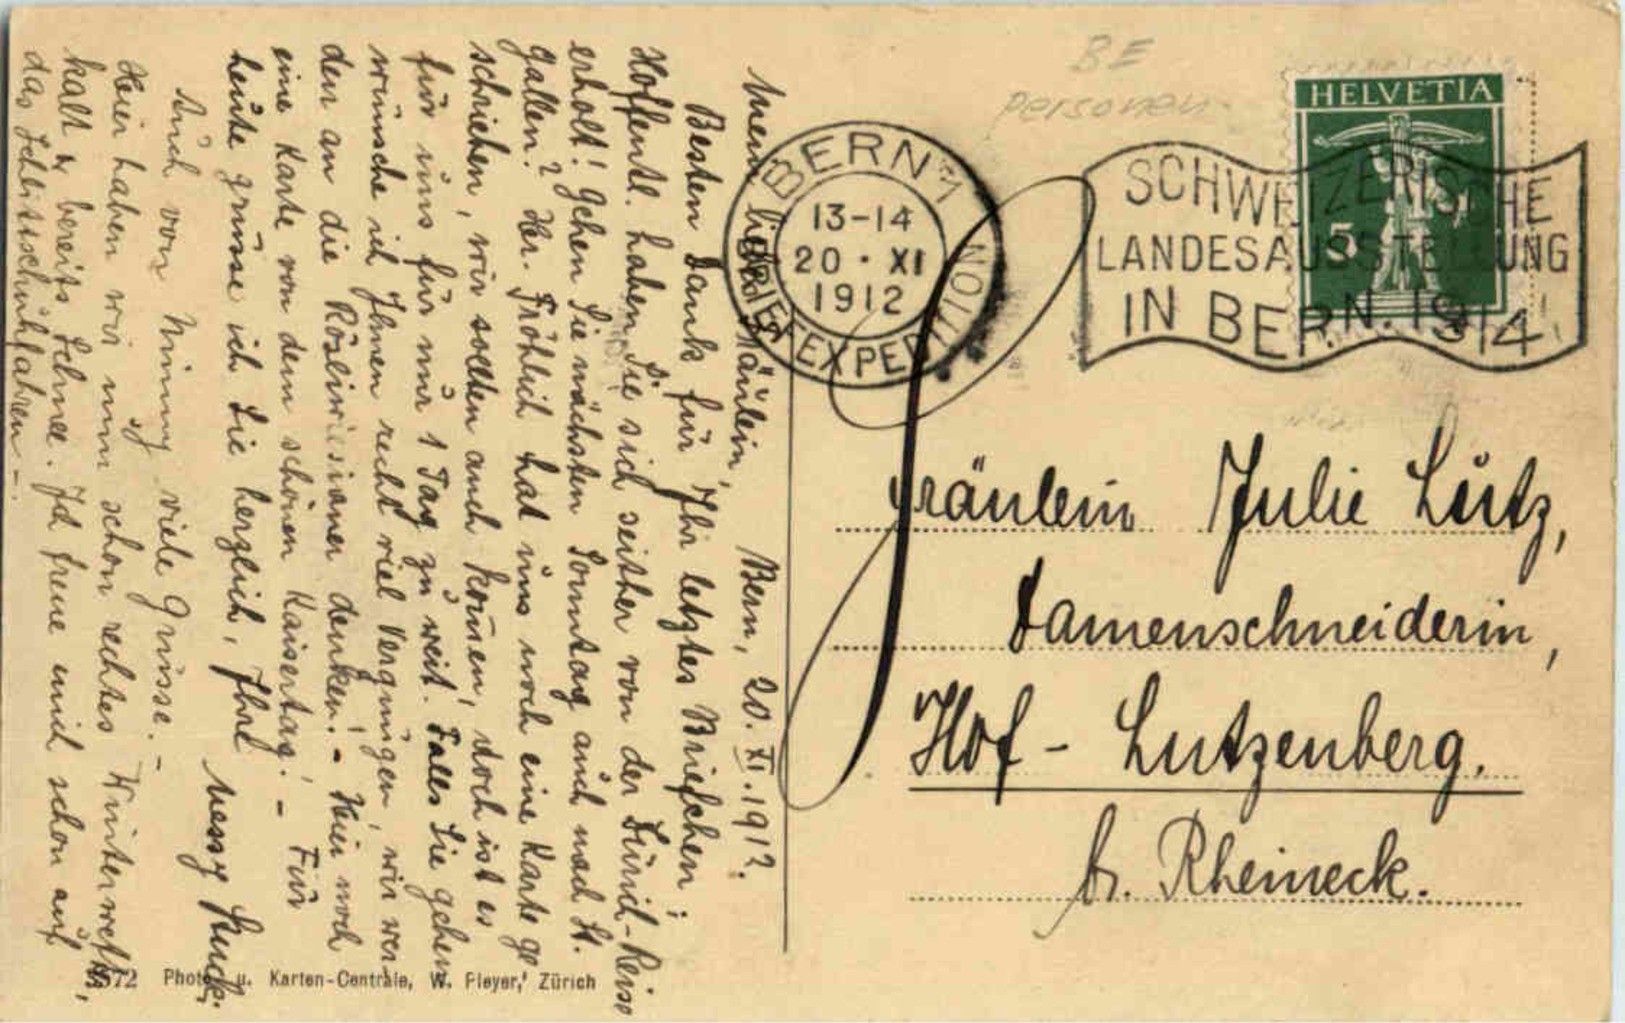 Mein liebes Fräulein, Bern, 20. XI. 1912.
Besten Dank für Ihr letztes Briefchen;
Hoffentl. haben Sie sich seither von der Zürich-Reise
erholt! Gehen Sie nächsten Sonntag auch nach St.
Gallen? Hr. Fröhlich hat uns noch eine Karte ge
schrieben, wir sollten auch kommen, doch ist es
für uns für nur 1 Tag zu weit. Falls Sie gehen
wünsche ich Ihnen recht viel Vergnügen, wir wer
den an die Rösliwiesianer denken! - Hier noch
eine Karte von dem schönen Kaisertag! - Für
heute grüsse ich Sie herzlich, Ihre
Auch von Mimmy viele Grüsse. -
Hier haben wir nun schon rechtes Winterwetter,
kalt & bereits Schnee. Ich freue mich schon auf
das Schlittschuhfahren -.
BE
Personen
BERN 1
13-14
20 · XI
1912
BRIEFEXPEDITION
HELVETIA
5
SCHWEIZERISCHE
LANDESAUSSTELLUNG
IN BERN.1914
Fräulein Julie Lutz,
Damenschneiderin,
Hof - Lutzenberg.
br. Rheineck.
Photo u. Karten-Centrale, W. Pleyer, Zürich